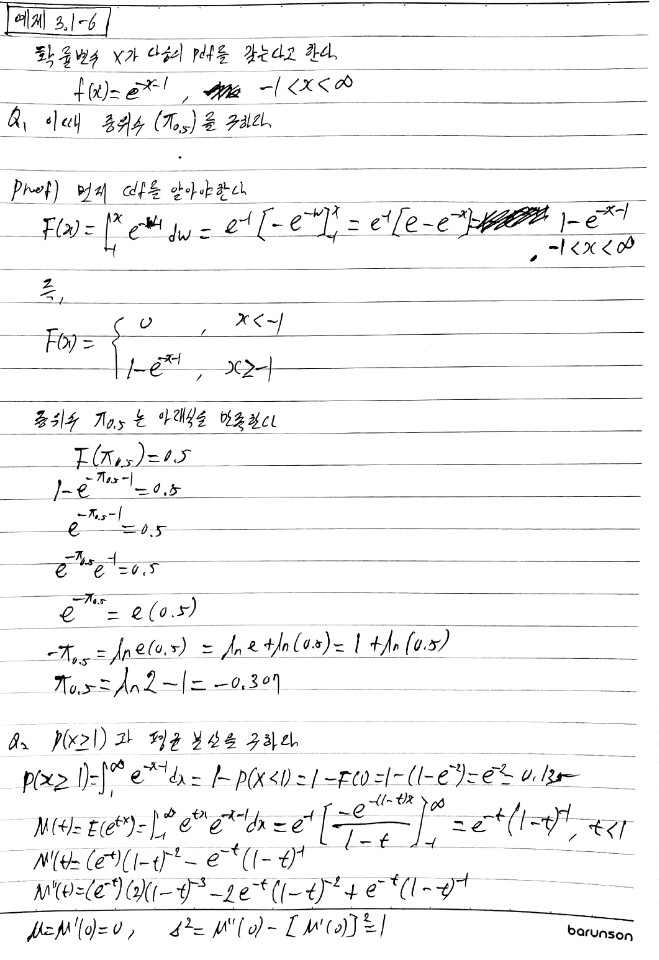 예제 3.1-6
확률변수 X가 다음의 pdf를 갖는다고 한다
f(x)=e^{-x-1} , -1<x<∞
Q1 이때 중위수 (π_{0.5})를 구하라
Proof) 먼저 cdf를 알아야한다
F(x)=∫_{-1}^{x} e^{-w-1} dw = e^{-1}[-e^{-w}]_{-1}^{x} = e^{-1}[e-e^{-x}]= 1-e^{-x-1}
, -1<x<∞
즉,
F(x)= { 0 , x<-1
1-e^{-x-1} , x≥-1
중위수 π_{0.5}는 아래식을 만족한다
F(π_{0.5})=0.5
1-e^{-π_{0.5}-1}=0.5
e^{-π_{0.5}-1}=0.5
e^{-π_{0.5}}e^{-1}=0.5
e^{-π_{0.5}}=e(0.5)
-π_{0.5}=ln e(0.5) = ln e+ln(0.5)=1+ln(0.5)
π_{0.5}=ln2-1=-0.307
Q2 P(X≥1)과 평균 분산을 구하라
P(X≥1)=∫_{1}^{∞} e^{-x-1}dx=1-P(X<1)=1-F(1)=1-(1-e^{-2})=e^{-2}=0.135
M(t)=E(e^{tx})=∫_{-1}^{∞} e^{tx}e^{-x-1}dx=e^{-1}[-e^{-(1-t)x}/1-t]_{-1}^{∞}=e^{-t}(1-t)^{-1}, t<1
M'(t)=(e^{-t})(1-t)^{-2}-e^{-t}(1-t)^{-1}
M''(t)=(e^{-t})(2)(1-t)^{-3}-2e^{-t}(1-t)^{-2}+e^{-t}(1-t)^{-1}
μ=M'(0)=0, s²=M''(0)-[M'(0)]²=1
barunson